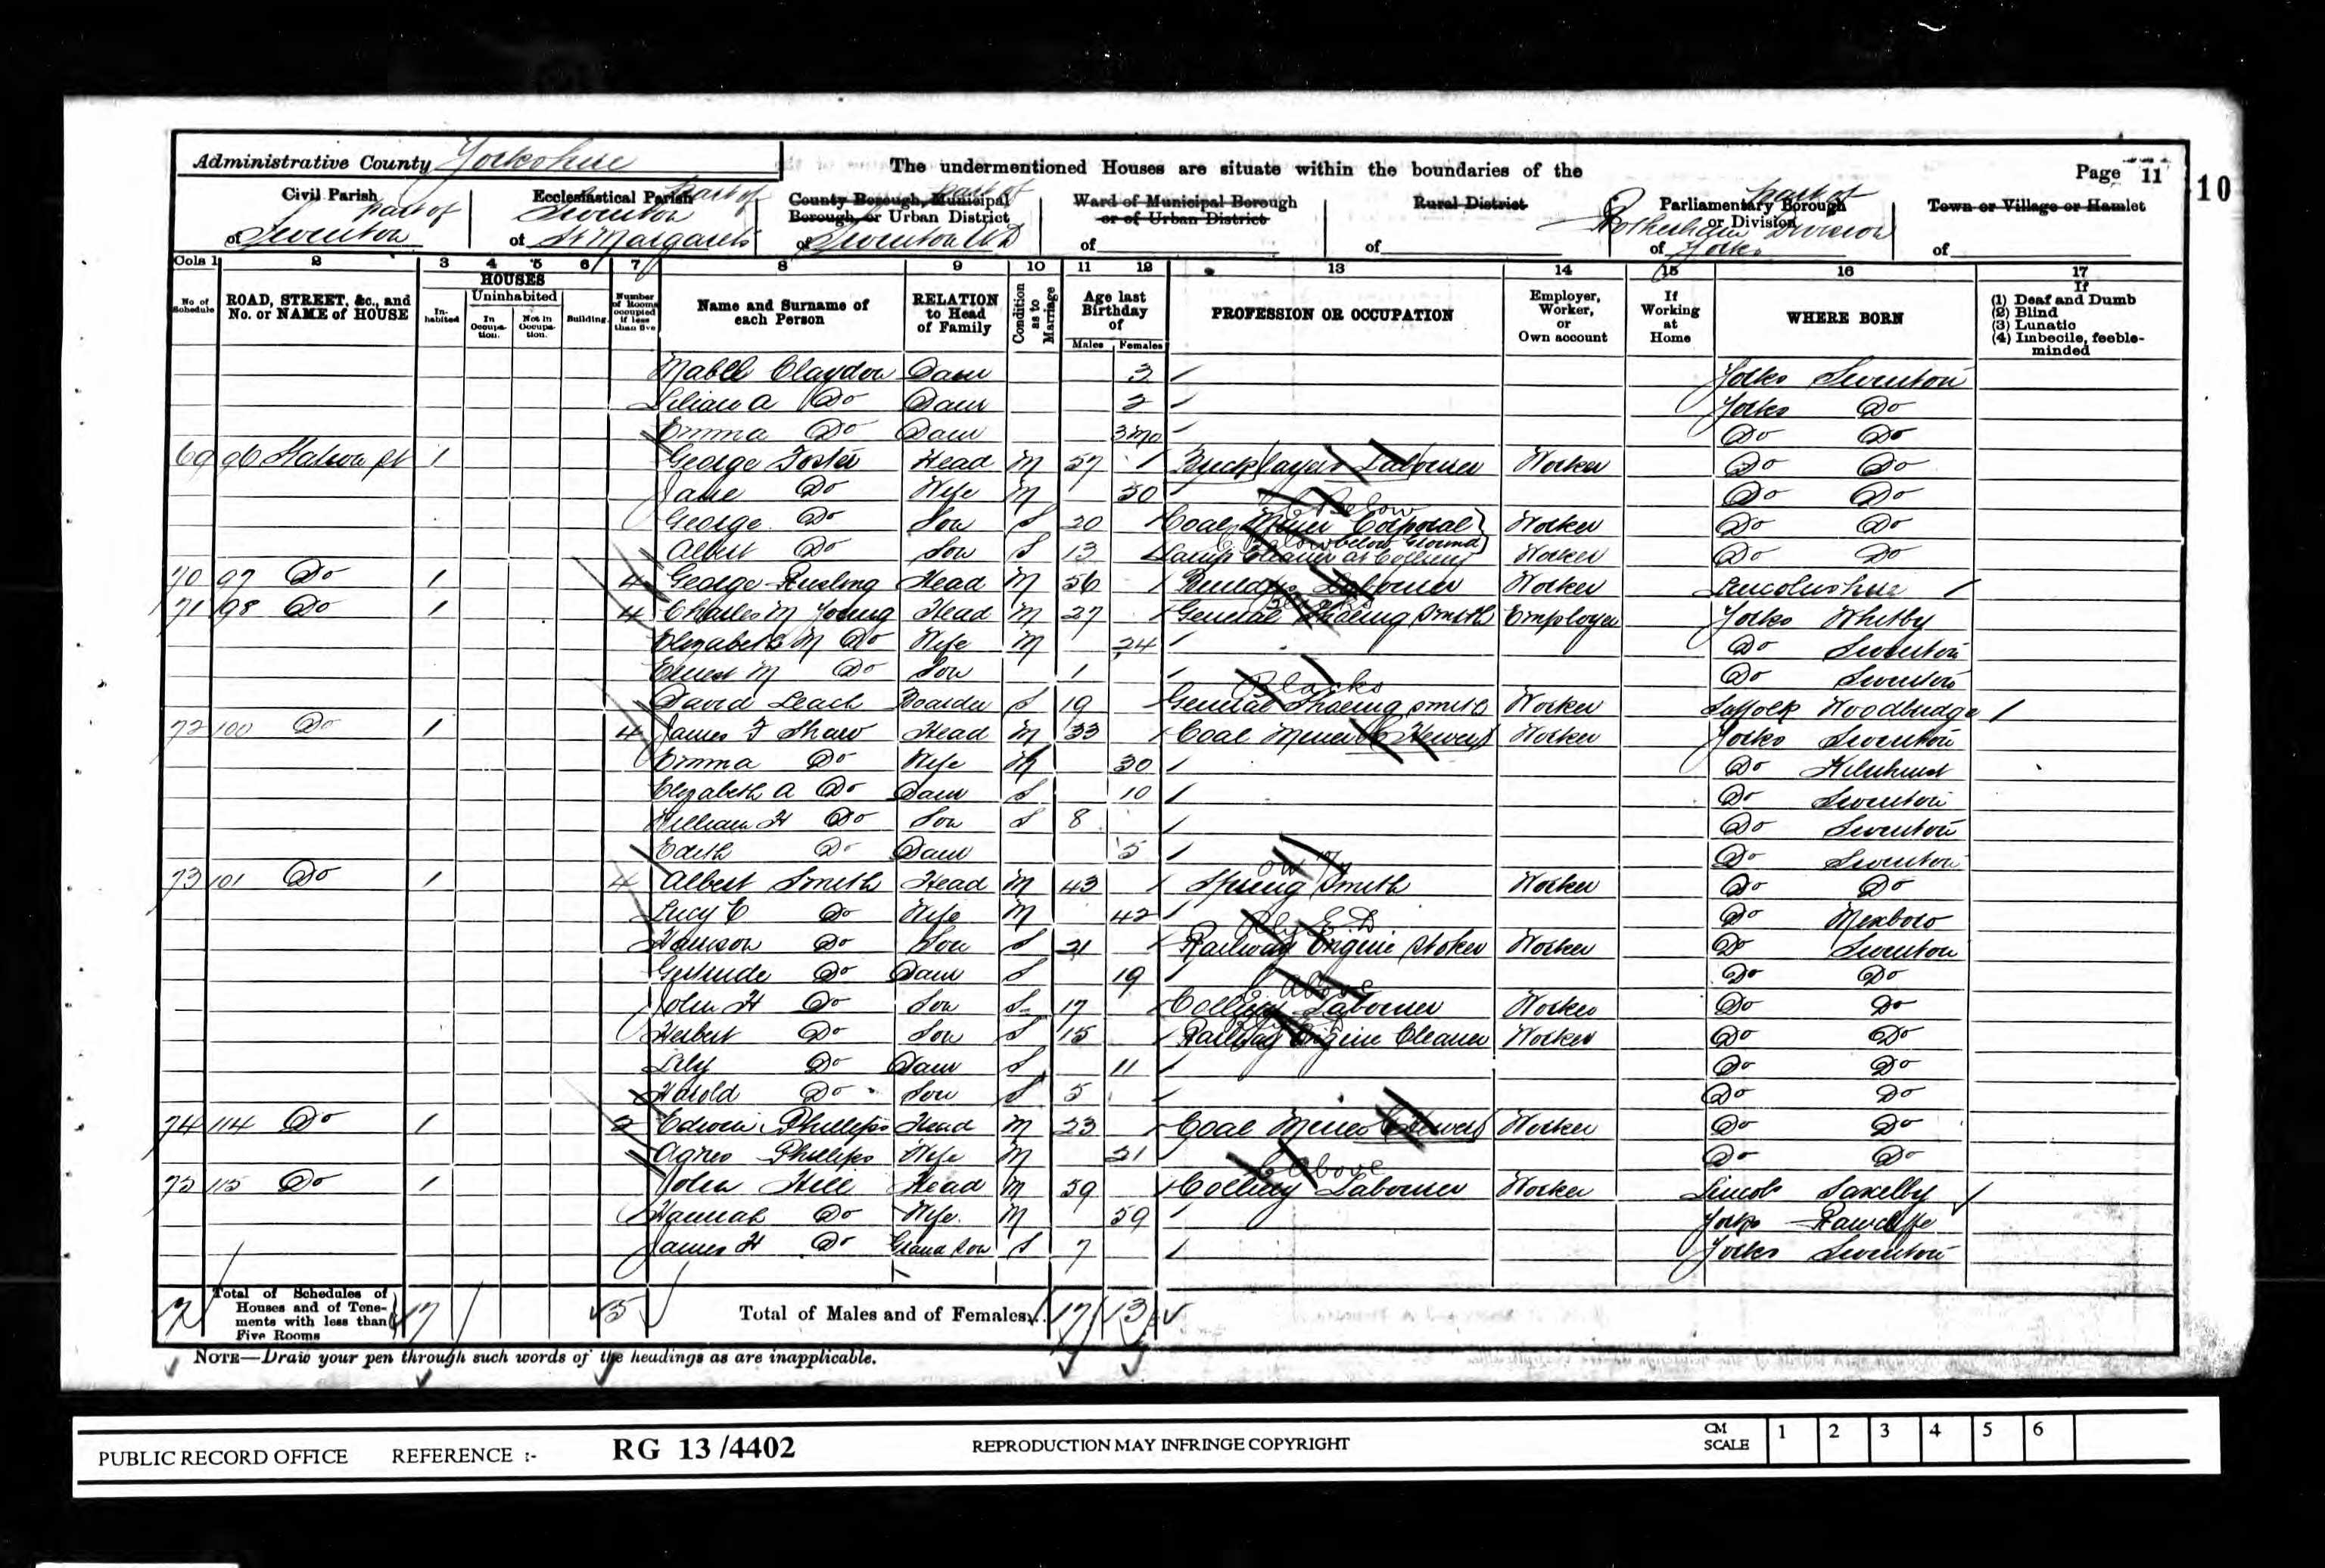 Administrative County Yorkshire
The undermentioned Houses are situate within the boundaries of the
Page 11
10
Civil Parish
part of
of Swinton
Ecclesiastical Parish
part of
Swinton
of St Margarets
County Borough, Municipal
Borough, or Urban District
part of
of Swinton U D
Ward of Municipal Borough
or of Urban District
of
Rural District
of
Parliamentary Borough
or Division
part of
Rotherham Division
of Yorks
Town or Village or Hamlet
of
Cols 1 2 3 4 5 6 7 8 9 10 11 12 13 14 15 16 17
No of Schedule
ROAD, STREET, &c., and No. or NAME of HOUSE
HOUSES
In-habited
Uninhabited
In Occupa-tion.
Not in Occupa-tion.
Building
Number of Rooms occupied if less than five
Name and Surname of each Person
RELATION to Head of Family
Condition as to Marriage
Age last Birthday of
Males Females
PROFESSION OR OCCUPATION
Employer, Worker, or Own account
If Working at Home
WHERE BORN
If
(1) Deaf and Dumb
(2) Blind
(3) Lunatic
(4) Imbecile, feeble-minded
Mabel Claydon Daur 3 Yorks Swinton
Lilian A Do Daur 2 Yorks Do
Emma Do Daur 3mo Do Do
69 96 1 George Foster Head M 57 Bricklayers Labourer Worker Do Do
Jane Do Wife M 50 Do Do
Below
George Do Son S 20 Coal Miner Corporal Worker Do Do
below Ground
Albert Do Son S 13 Lamp Cleaner at Colliery Worker Do Do
70 97 Do 1 4 George Rusling Head M 56 Labourer Worker Lincolnshire
71 98 Do 1 4 Charles M Young Head M 27 General Shoeing Smith Employer Yorks Whitby
Elizabeth M Do Wife M 24 Do Swinton
Ernest M Do Son 1 Do Swinton
Blacks
David Leach Boarder S 19 General Shoeing Smith Worker Suffolk Woodbridge
72 100 Do 1 4 James F Shaw Head M 33 Coal Miner (Hewer) Worker Yorks Swinton
Emma Do Wife M 30 Do Kilnhurst
Elizabeth A Do Daur S 10 Do Swinton
William H Do Son S 8 Do Swinton
Edith Do Daur 5 Do Swinton
73 101 Do 1 4 Albert Smith Head M 43 Spring Smith Worker Do Do
Lucy E Do Wife M 42 Do Mexboro
Harrison Do Son S 21 Railway Engine Stoker Worker Do Swinton
Gertrude Do Daur S 19 Do Do
above
John H Do Son S 17 Colliery Labourer Worker Do Do
Herbert Do Son S 15 Railway Engine Cleaner Worker Do Do
Lily Do Daur S 11 Do Do
Harold Do Son S 5 Do Do
74 114 Do 1 2 Edwin Phillips Head M 23 Coal Miner (Hewer) Worker Do Do
Agnes Phillips Wife M 21 Do Do
Above
75 115 Do 1 John Hill Head M 59 Colliery Labourer Worker Lincoln Saxelby
Hannah Do Wife M 59 Yorks Rawcliffe
James H Do Grand Son S 7 Yorks Swinton
7 Total of Schedules of Houses and of Tene-ments with less than Five Rooms 7 5 Total of Males and of Females 17 13
NOTE—Draw your pen through such words of the headings as are inapplicable.
PUBLIC RECORD OFFICE REFERENCE :- RG 13 /4402 REPRODUCTION MAY INFRINGE COPYRIGHT CM SCALE 1 2 3 4 5 6